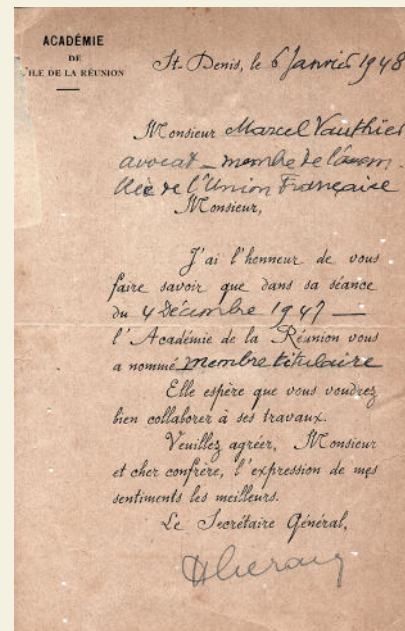 ACADÉMIE
DE
L'ILE DE LA RÉUNION
St-Denis, le 6 Janvier 1948
Monsieur Marcel Vauthier
avocat _ membre de l'assem-
blée de l'Union Française
Monsieur,
J'ai l'honneur de vous
faire savoir que dans sa séance
du 4 Décembre 1947 —
l'Académie de la Réunion vous
a nommé membre titulaire
Elle espère que vous voudrez
bien collaborer à ses travaux.
Veuillez agréer, Monsieur
et cher confrère, l'expression de mes
sentiments les meilleurs.
Le Secrétaire Général,